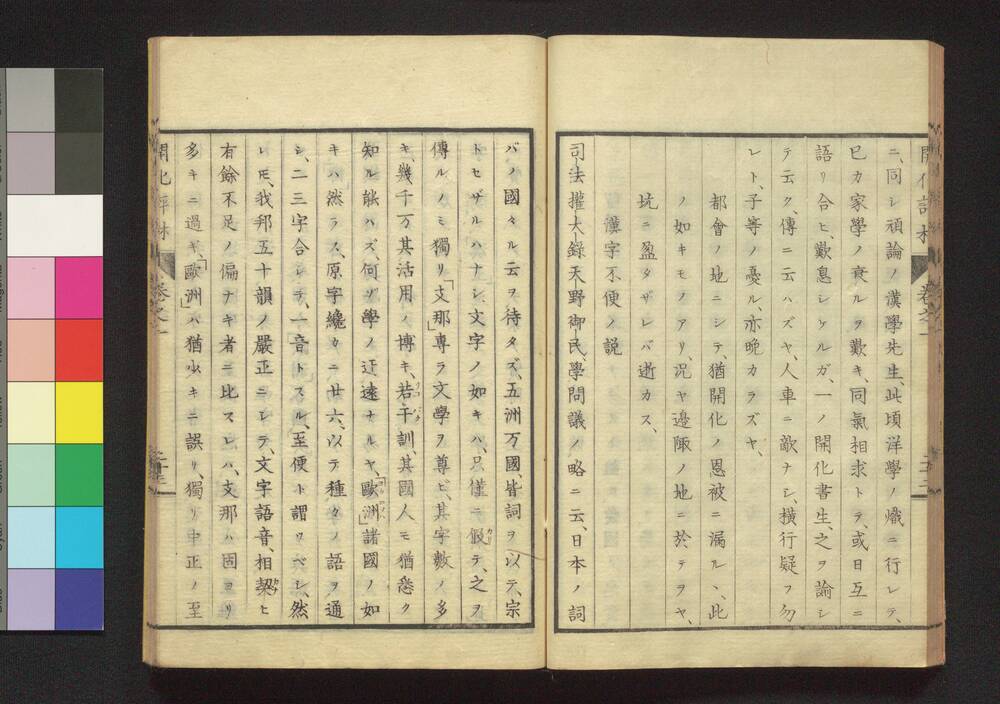 ニ、同シ頑論ノ漢學先生、此頃洋學ノ熾ニ行レテ、
已カ家學ノ衰ルヲ歎キ、同氣相求トテ、或日互ニ
語リ合ヒ、歎息シケルガ、一ノ開化書生、之ヲ諭シ
テ云ク、傳ニ云ハズヤ、人車ニ敵ナシ、横行疑フ勿
レト、子等ノ憂ル、亦晩カラズヤ、
都會ノ地ニシテ、猶開化ノ恩被ニ漏ルヽ、此
ノ如キモノアリ、況ヤ邉陬ノ地ニ於テヲヤ、
坑ニ盈タザレバ逝カス、
漢字不便ノ説
司法權大錄天野御民、學問議ノ略ニ云、日本ノ詞
バノ國々ル云ヲ待タズ、五洲万國、皆詞ヲ以テ、宗
トセザルハナシ、文字ノ如キハ、只僅ニ假テ、之ヲ
傳ルノミ獨リ「支那」専ラ文學ヲ尊ビ、其字數ノ多
キ、幾千万其活用ノ博キ、若干訓、其國人モ猶悉ク
知ル能ハズ、何ゾ學ノ迂遠ナルヤ、「歐洲」諸國ノ如
キハ然ラス、原字纔カニ廿六、以テ種々ノ語ヲ通
シ、二三字合シテ、一音トスル、至便ト謂ツベシ、然
レ𪜈、我邦五十韻ノ嚴正ニシテ、文字語音、相契ヒ
有餘不足ノ偏ナキ者ニ比スレハ、支那ハ固ヨリ
多キニ過ギ、「歐洲」ハ猶少キニ誤リ、獨リ中正ノ至
巻之一